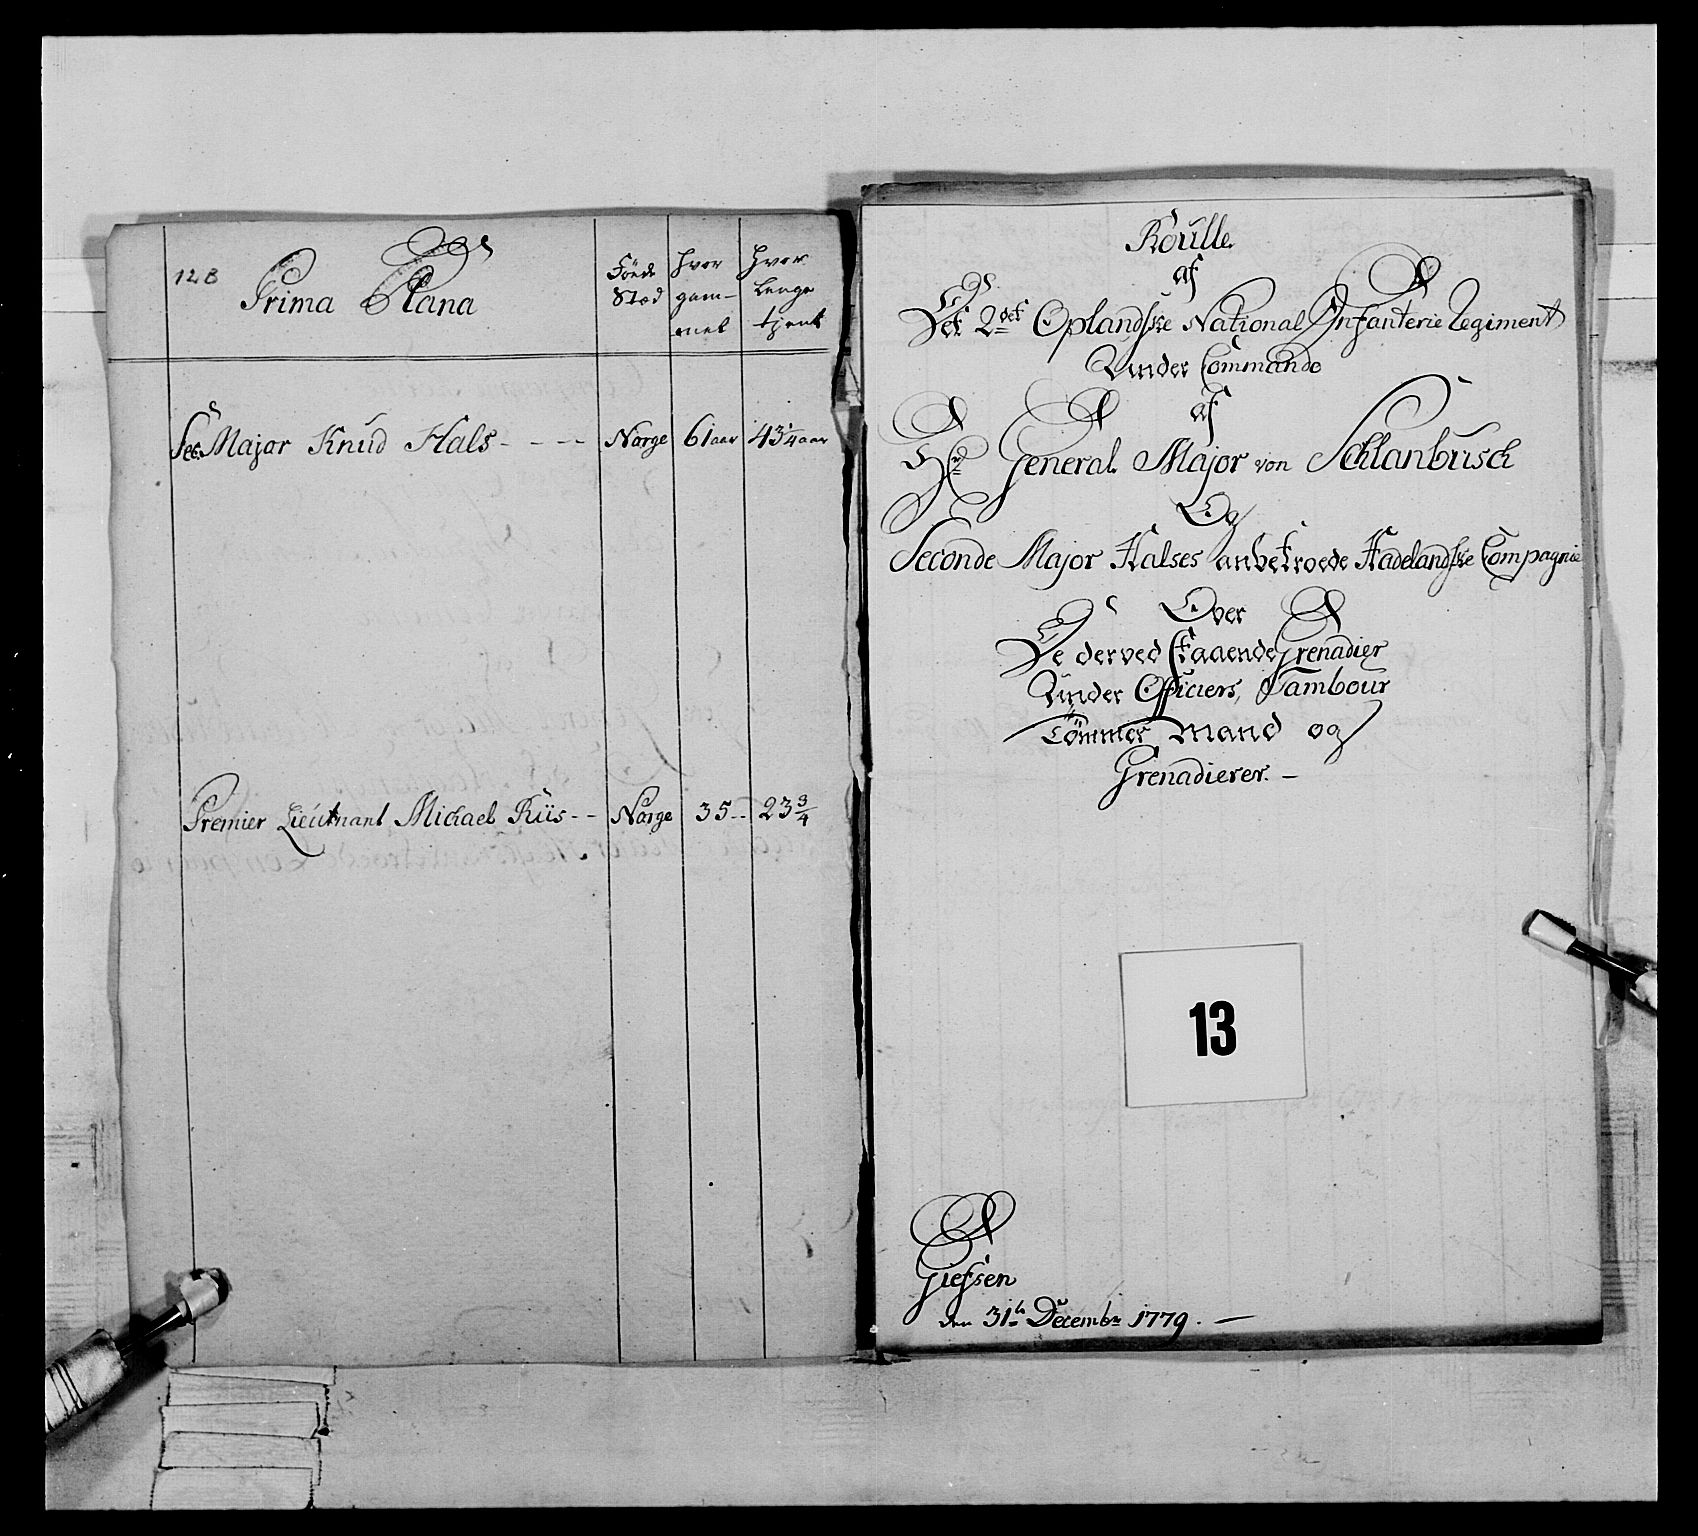 128
Prima Plana
Föede Stæd
hvor gam-mel
hvor længe tjent
Sec: Major Knud Hals - - - - Norge 61 aar 43 1/4 aar
Premier Lieutnant Michael Riis - - Norge 35 - - 23 3/4
Roulle
af
Det 2det Oplandske National Infanterie Regiment
Under Commando
af
Hr General Major von Schlanbusch
Og
Seconde Major Halses anbetroede Hadelandske Compagnie
Over
De derved staaende Grenadier
Under Officiers, Tambour
Tömmer mand og
Grenadierer. -
13
Giefsen
den 31te Decembr 1779. -